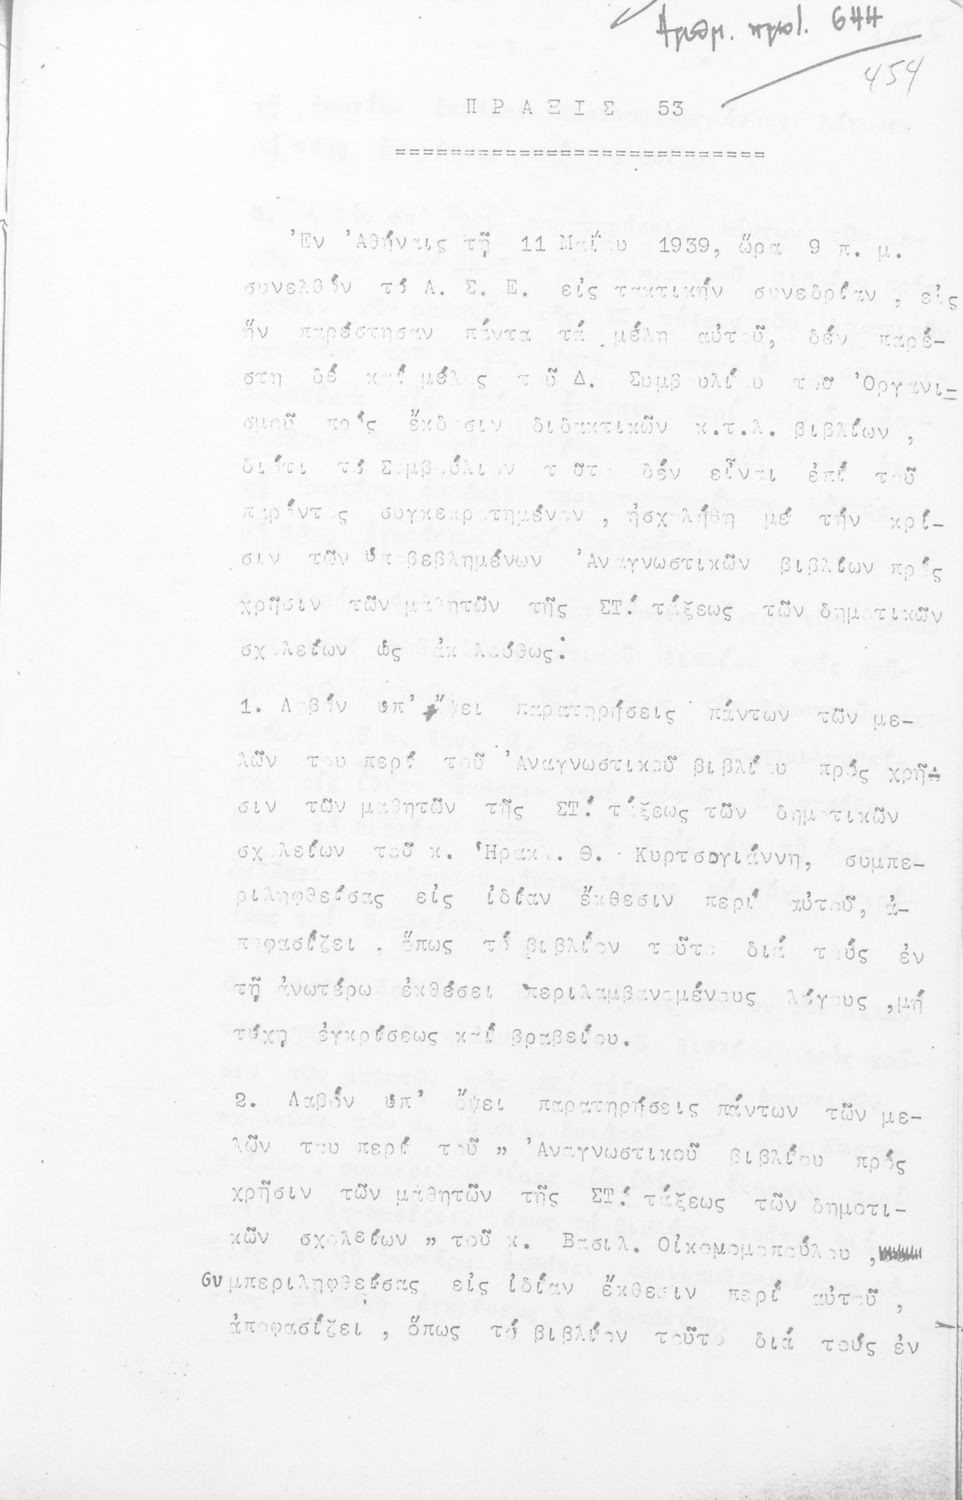 Αριθμ. πρωτ. 644
454
ΠΡΑΞΙΣ 53
===========================
Ἐν Ἀθήναις τῇ 11 Μαΐου 1939, ὥρα 9 π. μ.
συνελθόν τό Α. Σ. Ε. εἰς τακτικήν συνεδρίαν , εἰς
ἥν παρέστησαν πάντα τά μέλη αὐτοῦ, δέν παρέ-
στη δέ καί μέλος τοῦ Δ. Συμβουλίου τοῦ Ὀργανι-
σμοῦ πρός ἔκδοσιν διδακτικῶν κ.τ.λ. βιβλίων ,
διότι τό Συμβούλιον τοῦτο δέν εἶναι ἐπί τοῦ
παρόντος συγκεκροτημένον , ἠσχολήθη μέ τήν κρί-
σιν τῶν ὑποβεβλημένων Ἀναγνωστικῶν βιβλίων πρός
χρῆσιν τῶν μαθητῶν τῆς ΣΤ΄ τάξεως τῶν δημοτικῶν
σχολείων ὡς ἀκολούθως:
1. Λαβόν ὑπ' ὄψει παρατηρήσεις πάντων τῶν με-
λῶν του περί τοῦ Ἀναγνωστικοῦ βιβλίου πρός χρῆ-
σιν τῶν μαθητῶν τῆς ΣΤ΄ τάξεως τῶν δημοτικῶν
σχολείων τοῦ κ. Ἡρακλ. Θ. Κυρτσογιάννη, συμπε-
ριληφθείσας εἰς ἰδίαν ἔκθεσιν περί αὐτοῦ, ἀ-
ποφασίζει , ὅπως τό βιβλίον τοῦτο διά τούς ἐν
τῇ ἀνωτέρω ἐκθέσει περιλαμβανομένους λόγους ,μή
τύχῃ ἐγκρίσεως καί βραβείου.
2. Λαβόν ὑπ' ὄψει παρατηρήσεις πάντων τῶν με-
λῶν του περί τοῦ " Ἀναγνωστικοῦ βιβλίου πρός
χρῆσιν τῶν μαθητῶν τῆς ΣΤ΄ τάξεως τῶν δημοτι-
κῶν σχολείων " τοῦ κ. Βασιλ. Οἰκομομοπούλου ,
συμπεριληφθείσας εἰς ἰδίαν ἔκθεσιν περί αὐτοῦ ,
ἀποφασίζει , ὅπως τό βιβλίον τοῦτο διά τούς ἐν